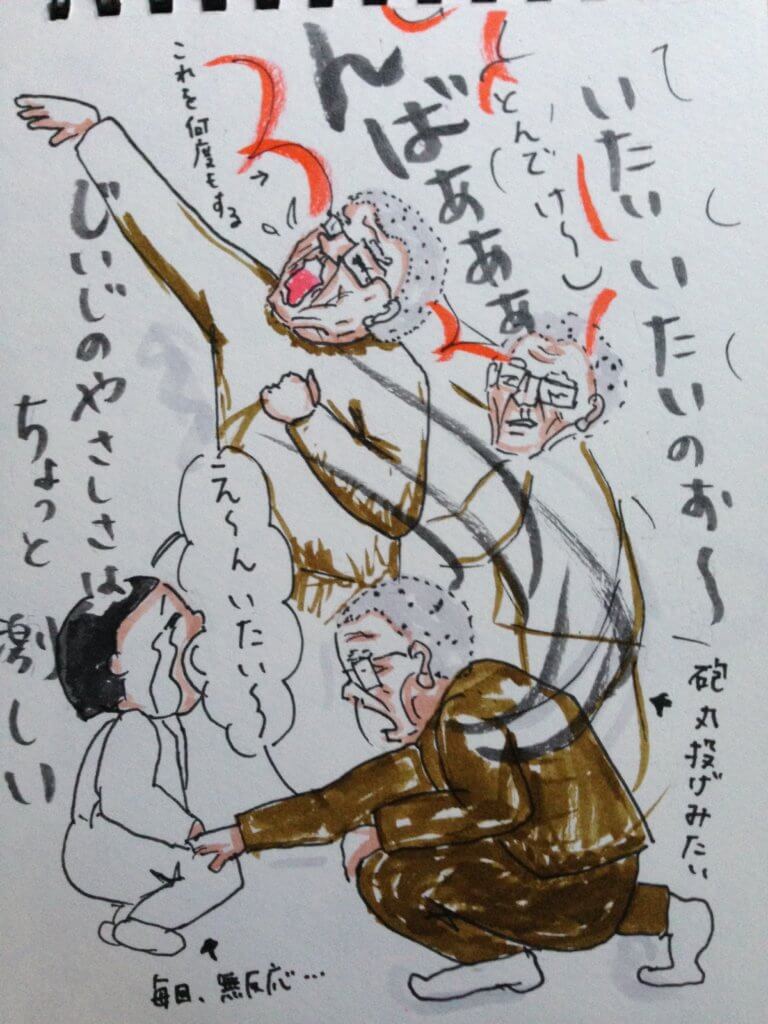 いたいいたいのお〜
(とんでけ〜)
んばぁぁぁ
これを何度もする
砲丸投げみたい
え〜んいたい〜
じいじのやさしさは
ちょっと激しい
毎回、無反応…